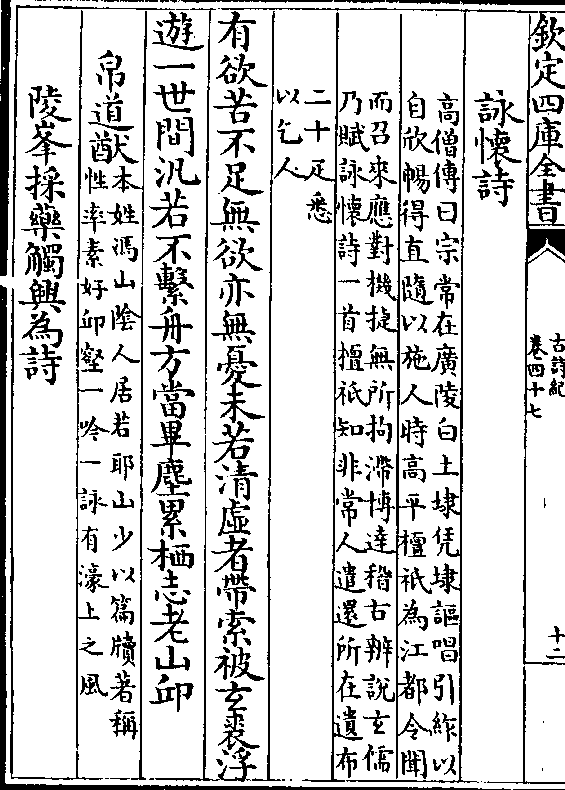 欽定四庫全書
古詩紀
卷四十七
十二
詠懷詩
高僧傳曰宗常在廣陵白土埭凭埭謳唱引䋏以
自欣暢得直隨以施人時高平檀祇為江都令聞
而召來應對機捷無所拘滯博達稽古辨說玄儒
乃賦詠懷詩一首檀祇知非常人遣還所在遺布
二十疋悉
以乞人
有欲苦不足無欲亦無憂未若清虛者帶索被玄裘浮
遊一世間汎若不繫舟方當畢塵累栖志老山丘
帛道猷本姓馮山陰人居若耶山少以篇牘著稱
性率素好丘壑一吟一詠有濠上之風
陵峯採藥觸興為詩